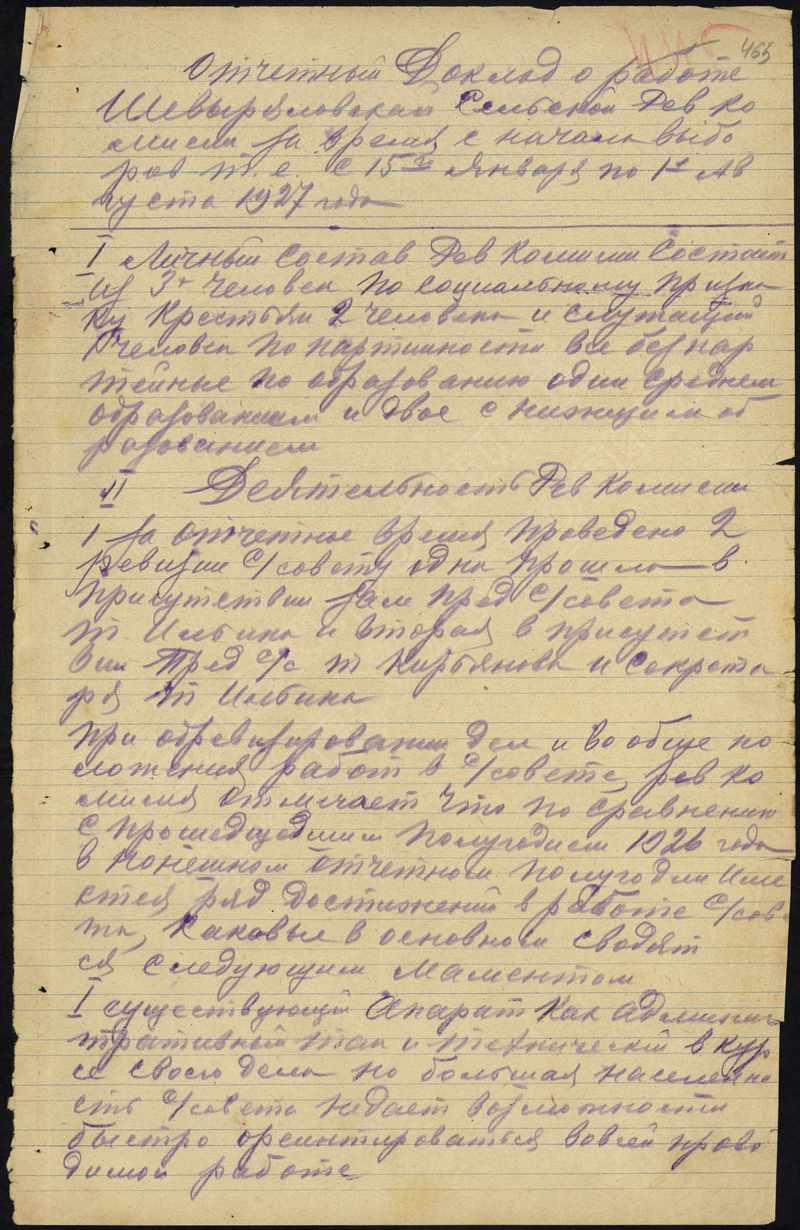 465
Отчетный Доклад о работе
Шевыряловской Сельской Рев ко
мисии за время с начала выбо
ров т.е. с 15го января по 1е Ав
густа 1927 года
I Личный состав Рев Комисии Состоит
из 3х человек по социальному призна
ку Крестьян 2 человека и служащий
1 человек по партийности все безпар
тейные по образованию один средним
образованием и двое с низшим об
разованием
II Деятельность Рев комисии
1 За отчетное время проведено 2
ревизии с/совету одна прошла в
присутствии зам пред с/совета
т. Ильина и вторая в присутст
вии Пред с/с т Кирьянова и секрета
ря т Ильина
При обревизировании дел и вообще по
ложения работ в с/совете, рев ко
мисия отмечает что по сравнению
с прошедшим полугодием 1926 года
в конешном отчетном полугодии име
ется ряд достижений в работе с/сове
та, каковые в основном сводят
ся следующим маментом
I существующий апарат как админис
тративный так и технический в кур
се своего дела но большая населенно
сть с/совета недает возможности
быстро ореинтироваться вовсей прово
димой работе